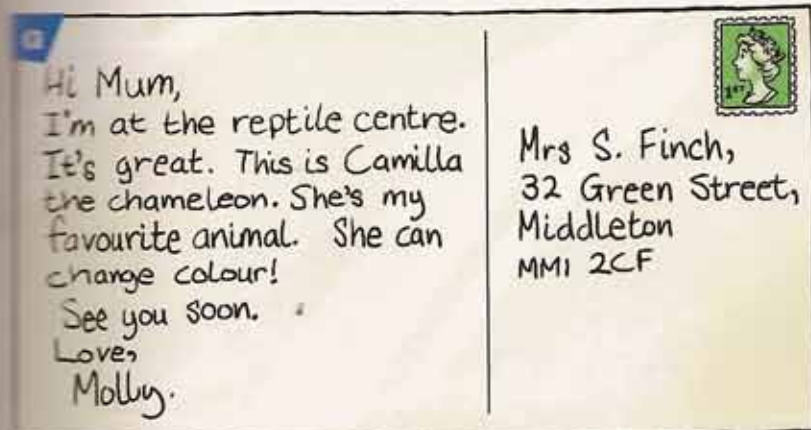 a
Hi Mum,
I'm at the reptile centre.
It's great. This is Camilla
the chameleon. She's my
favourite animal. She can
change colour!
See you soon.
Love,
Molly.
1ST
Mrs S. Finch,
32 Green Street,
Middleton
MM1 2CF